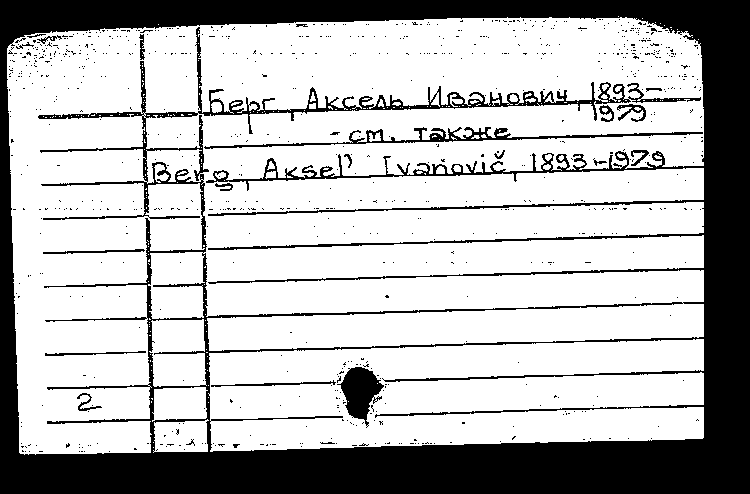 Берг, Аксель Иванович, 1893-
1979
- см. также
Berg, Aksel' Ivanovič, 1893-1979
2